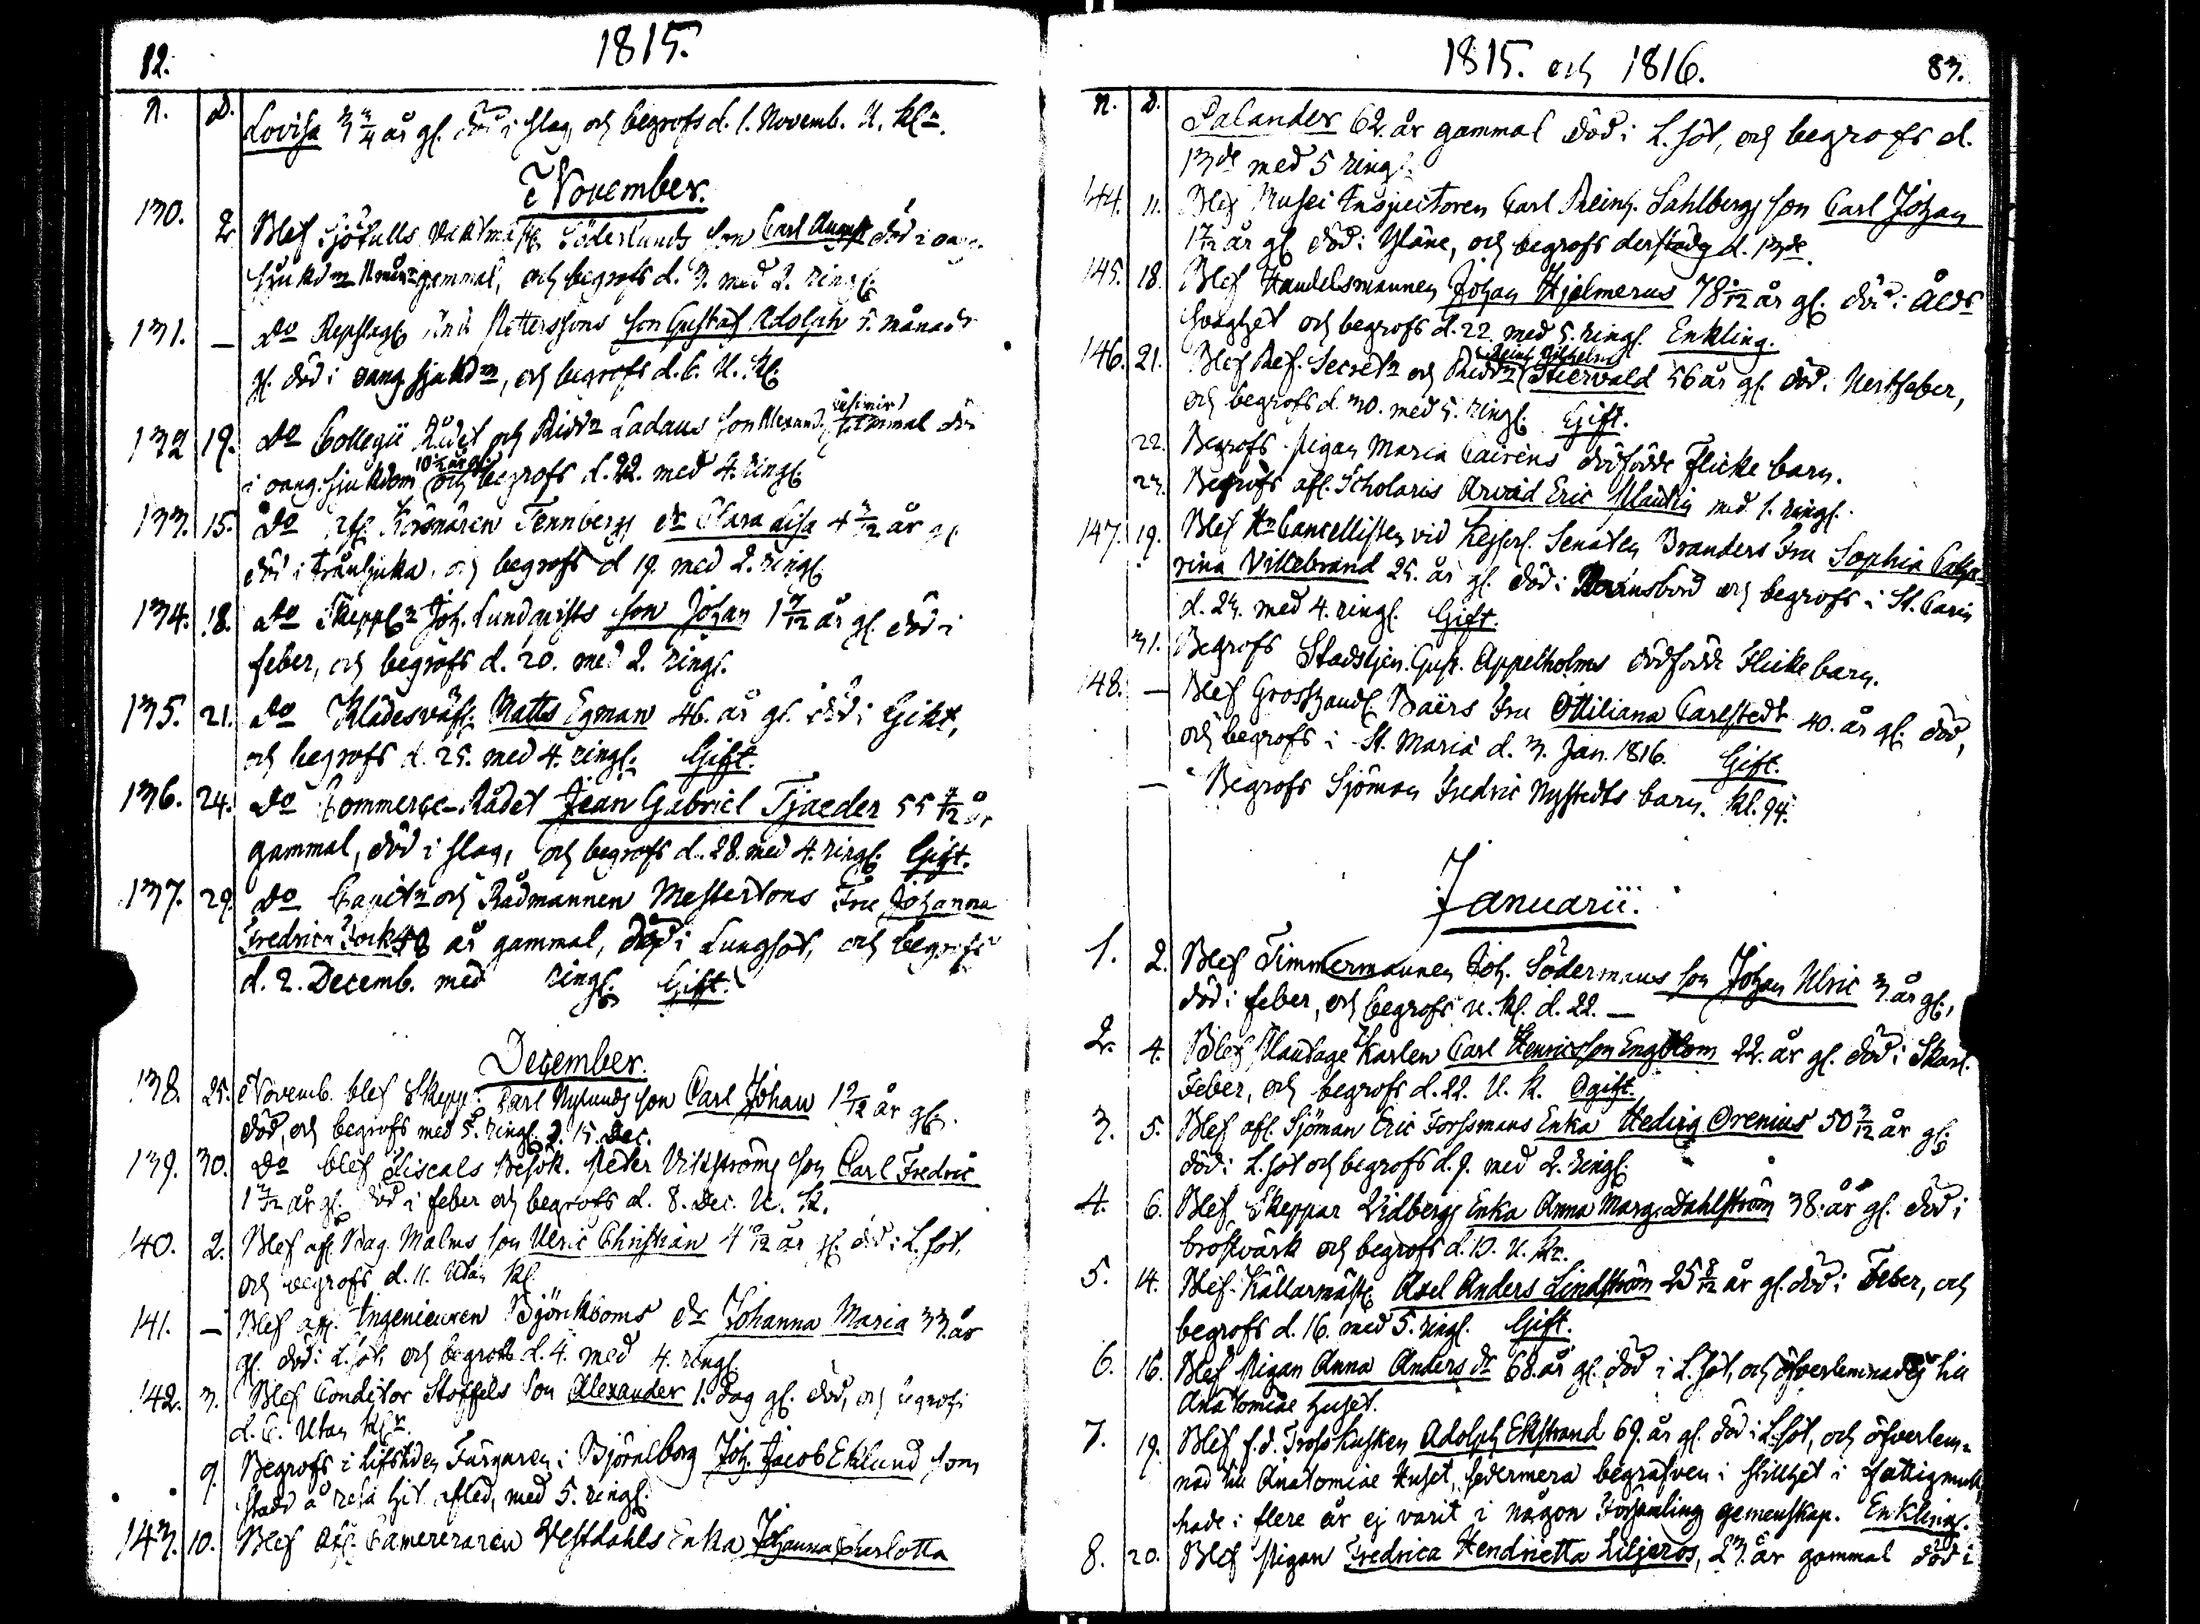 82.
1815.
N. D.
Lovisa 3 3/4 år gl. död i slag, och begrofs d. 1. Novemb. U. Kl:r.
November.
130. 2. Blef Sjötulls Vaktmäst. Söderlunds son Carl August död i oang.
sjukd:m 11 mån:r gammal, och begrofs d. 3. med 2. ringl.
131. — D:o Repslag. Petterssons son Gustaf Adolph 5. månad:r
gl. död i oang. sjukd:m, och begrofs d. 6. U. Kl.
132 19. D:o Collegii Rådet och Ridd:n Ladaus son Alexand. Casimir död
i oang. sjukdom 10 1/2 år gl. och begrofs d. 22. med 4. ringl.
133. 15. D:o afl. Tennbergs d:r Clara Lisa 4 3/12 år gl
död i trånsjuka, och begrofs d 19. med 2. ringl.
134. 18. D:o Skepp:n Joh. Lundqvists son Johan 1 3/12 år gl. död i
feber, och begrofs d. 20. med 2. ringl.
135. 21. D:o Klädesväfv. Matts Egman 46. år gl. död i Gikt,
och begrofs d. 25. med 4. ringl. Gift.
136. 24. D:o Commerce-Rådet Jean Gabriel Tjaeder 55 4/12 år
gammal, död i slag, och begrofs d. 28. med 4. ringl. Gift.
137. 29. D:o Capit:n och Rådmannen Mestertons Fru Johanna
Fredrica Fock 48 år gammal, död i Lungsot, och begrofs
d. 2. Decemb. med ringl. Gift.
December.
138. 25. Novemb. blef Skepp. Carl Nylunds son Carl Johan 1 2/12 år gl.
död, och begrofs med 5. ringl. d. 15. Dec.
139. 30. D:o blef Fiscals Besök. Peter Vikströms son Carl Fredric
1 3/12 år gl. död i feber och begrofs d. 8. Dec. U. Kl.
140. 2. Blef afl. Bag. Malms son Ulric Christian 4 9/12 år gl. död i L. sot,
och begrofs d. 11. Utan Kl.
141. — Blef afl. Ingenieuren Björkboms d:r Johanna Maria 33. år
gl. död i L. sot, och begrofs d. 4. med 4. ringl.
142. 3. Blef Conditor Stoffels son Alexander 1. dag gl. död, och begrofs
d. 6. Utan Kl:r.
9. Begrofs i Lifstiden Färgaren i Björneborg Joh. Jacob Eklund som
stadd å resa hit afled, med 5. ringl.
143. 10. Blef Afl. Camereraren Vestdahls Enka Johanna Charlotta
1815. och 1816. 83.
N. D.
Salander 62. år gammal död i L. sot, och begrofs d.
13de med 5 ringl.
144. 11. Blef Musei Inspectoren Carl Reinh. Sahlbergs son Carl Johan
1 7/12 år gl. död i Yläne, och begrofs derstädes d. 13de.
145. 18. Blef Handelsmannen Johan Hjelmerus 78 år gl. död i Ålds
svaghet och begrofs d. 22 med 5. ringl. Enkling.
146. 21. Blef Ref. Secret:n och Ridd:n Reinh. Vilhelm Stiervald 56 år gl. död i Nervfeber,
och begrofs d. 30. med 5. ringl. Gift.
22. Begrofs Pigan Maria Cairéns dödfödde Flicke barn.
23. Begrofs afl. Scholaris Arvid Eric Plantin med 1. ringl.
147. 19. Blef H:r Cancellisten vid Kejserl. Senaten Branders Fru Sophia Catha-
rina Villebrand 25. år gl. död i Barnsbörd och begrofs i St. Carin
d. 23. med 4. ringl. Gift.
31. Begrofs Stadstjen. Gust. Appelholms dödfödde Flicke barn.
148. — Blef Grosshandl. Baërs Fru Ottiliana Carlstedt 40. år gl. död,
och begrofs i St. Maria d. 3. Jan. 1816. Gift.
— Begrofs Sjöman Fredric Nystedts barn. Kl. 94.
Januarii.
1. 2. Blef Timmermannen Joh. Södermans son Johan Ulric 3. år gl.,
död i feber, och begrofs u. Kl. d. 22. —
2. 4. Blef Plantage Karlen Carl Henricsson Engblom 22. år gl. död i Skarl.
Feber, och begrofs d. 22. U. K. Ogift.
3. 5. Blef afl. Sjöman Eric Forssmans Enka Hedvig Orenius 50 3/12 år gl.
död i L. sot och begrofs d. 9. med 2. ringl.
4. 6. Blef Skeppar Vidbergs Enka Anna Marg. Dahlström 38. år gl. död i
bröstvärk och begrofs d. 10. U. Kl:r.
5. 14. Blef Källarmäst. Axel Anders Lindström 25 8/12 år gl. död i Feber, och
begrofs d. 16. med 5. ringl. Gift.
6. 16. Blef Pigan Anna Anders d:r 68. år gl. död i L. sot, och öfverlemnades till
Anatomiae huset.
7. 19. Blef f.d. Trosskusken Adolph Ekstrand 69. år gl. död i L. sot, och öfverlem-
nad till Anatomiae Huset, sedermera begrafven i stillhet i fattigmull,
hade i flere år ej varit i någon Församling gemenskap. Enkling.
8. 20. Blef Pigan Fredrica Hendrietta Liljeros, 23. år gammal död i